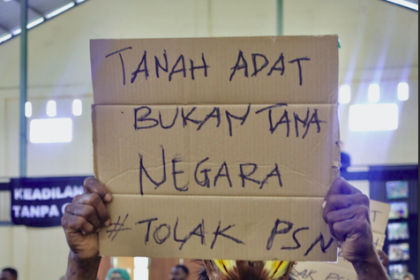 TANAH ADAT
BUKAN TANA
NEGARA
# TOLAK PSN
KEADILAN
TANPA